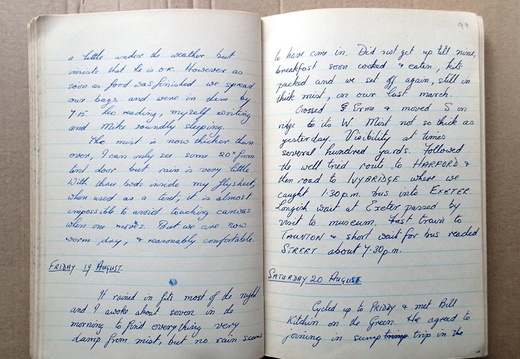 a little under the weather but
insists that he is O.K. However as
soon as food was finished we spread
our bags and were in them by
7.15 Leo reading, myself writing
and Mike soundly sleeping.
The mist is now thicker than
ever, I can only see some 20' from
tent door but rain is very little.
With three bods inside my flysheet,
when used as a tent, it is almost
impossible to avoid touching canvas
when one moves. But we are now
warm, dry, & reasonably comfortable.
FRIDAY 19 AUGUST.
It rained in fits most of the night
and I awoke about seven in the
morning to find everything very
damp from mist, but no rain seems
99
to have come in. Did not get up till nine,
breakfast soon cooked & eaten, kit
packed and we set off again, still in
thick mist, on our last march.
Crossed R Erme & moved S on
ridge to its W. Mist not so thick as
yesterday. Visibility at times
several hundred yards. Followed
the well tried route to HARFORD &
then road to IVYBRIDGE where we
caught 1.30 p.m. bus into EXETER
Longish wait at Exeter passed by
visit to museum. Fast train to
TAUNTON & short wait for bus reached
STREET about 7.30 p.m.
SATURDAY 20 AUGUST
Cycled up to PRIDDY & met Bill
Kitchin on the Green. He agreed to
joining in sump trip in the